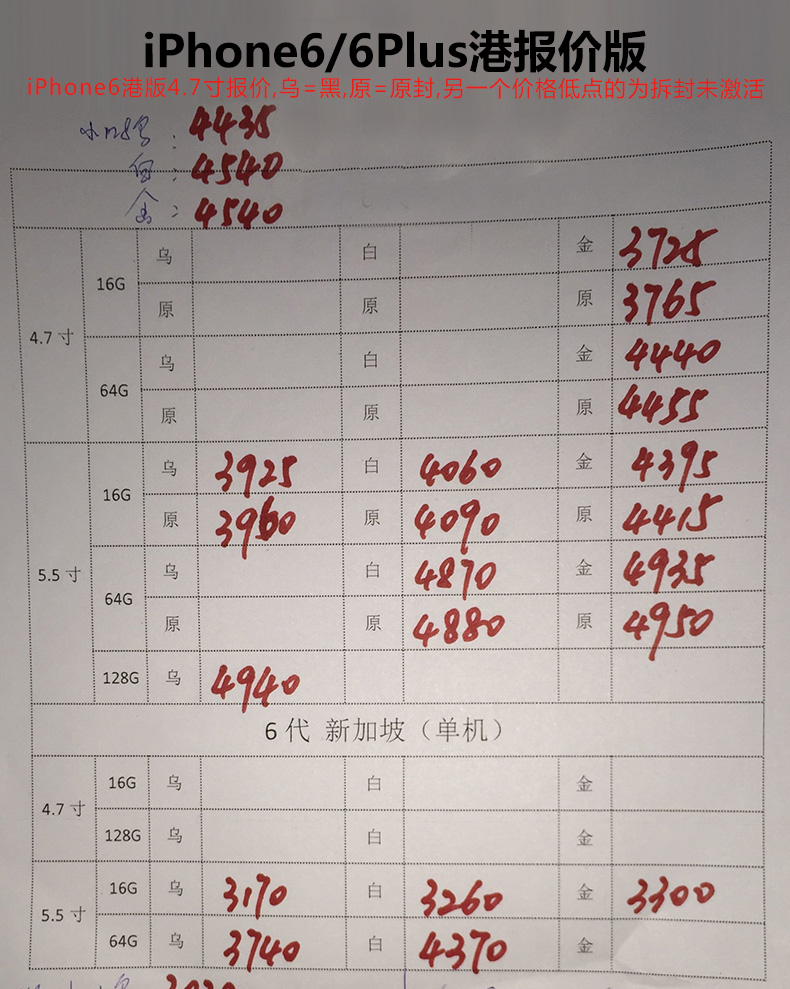 iPhone6/6Plus港报价版
iPhone6港版4.7寸报价,乌=黑,原=原封,另一个价格低点的为拆封未激活
小128乌: 4435
白: 4540
金: 4540
4.7寸 16G 乌 白 金 3725
原 原 原 3765
64G 乌 白 金 4440
原 原 原 4455
5.5寸 16G 乌 3925 白 4060 金 4395
原 3960 原 4090 原 4415
64G 乌 白 4870 金 4935
原 原 4880 原 4950
128G 乌 4940
6代 新加坡（单机）
4.7寸 16G 乌 白 金
128G 乌 白 金
5.5寸 16G 乌 3170 白 3260 金 3300
64G 乌 3740 白 4370 金